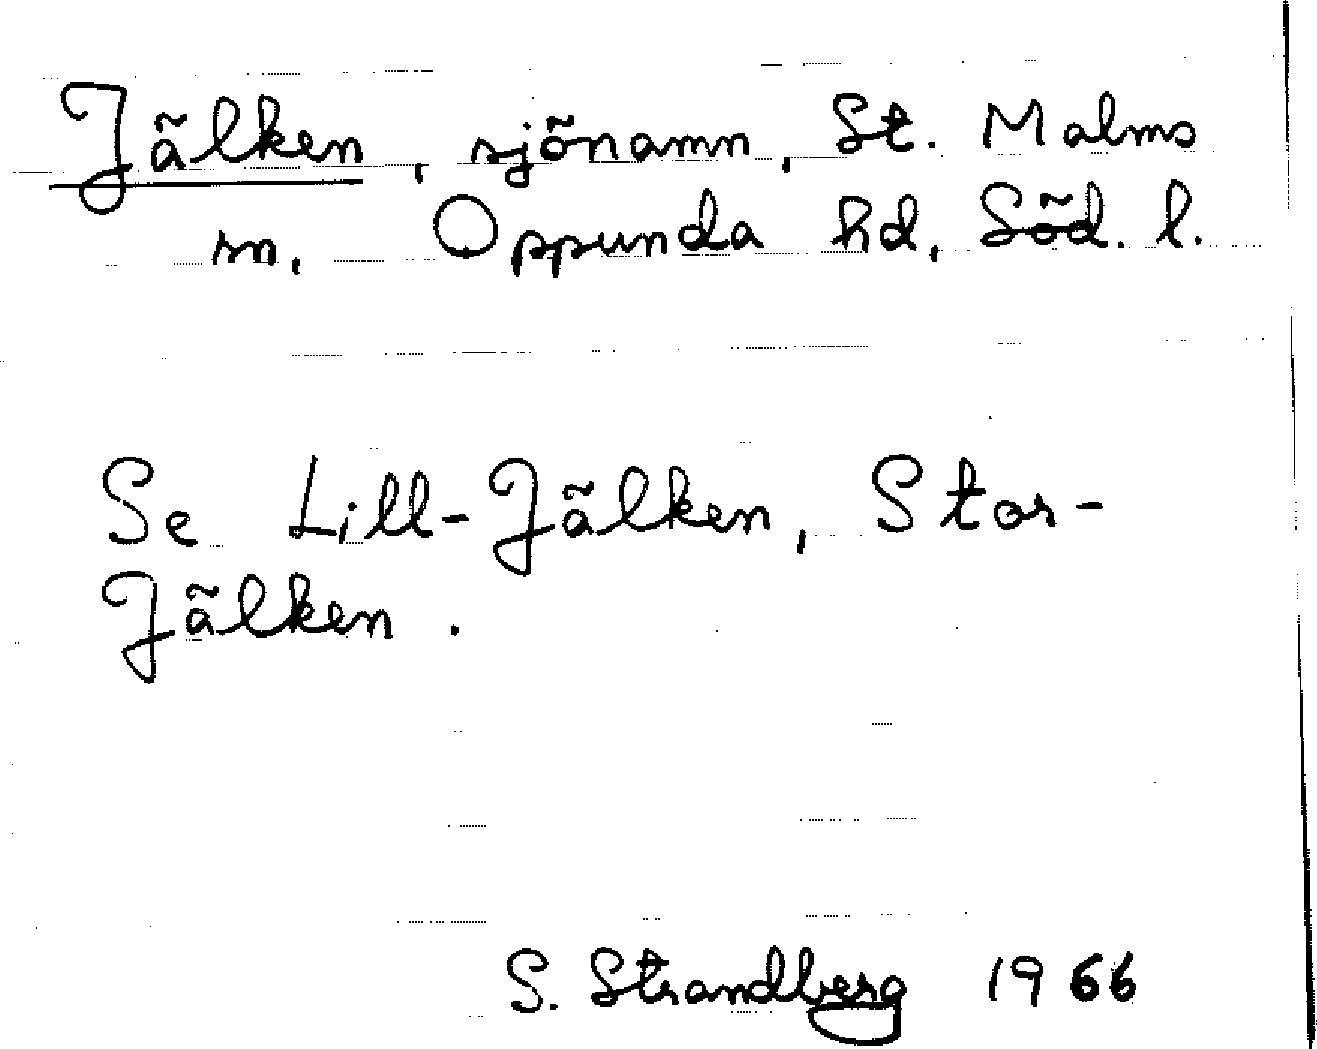 Jälken, sjönamn, St. Malms
sn, Oppunda hd, Söd. l.
Se Lill-Jälken, Stor-
Jälken.
S. Strandberg 1966